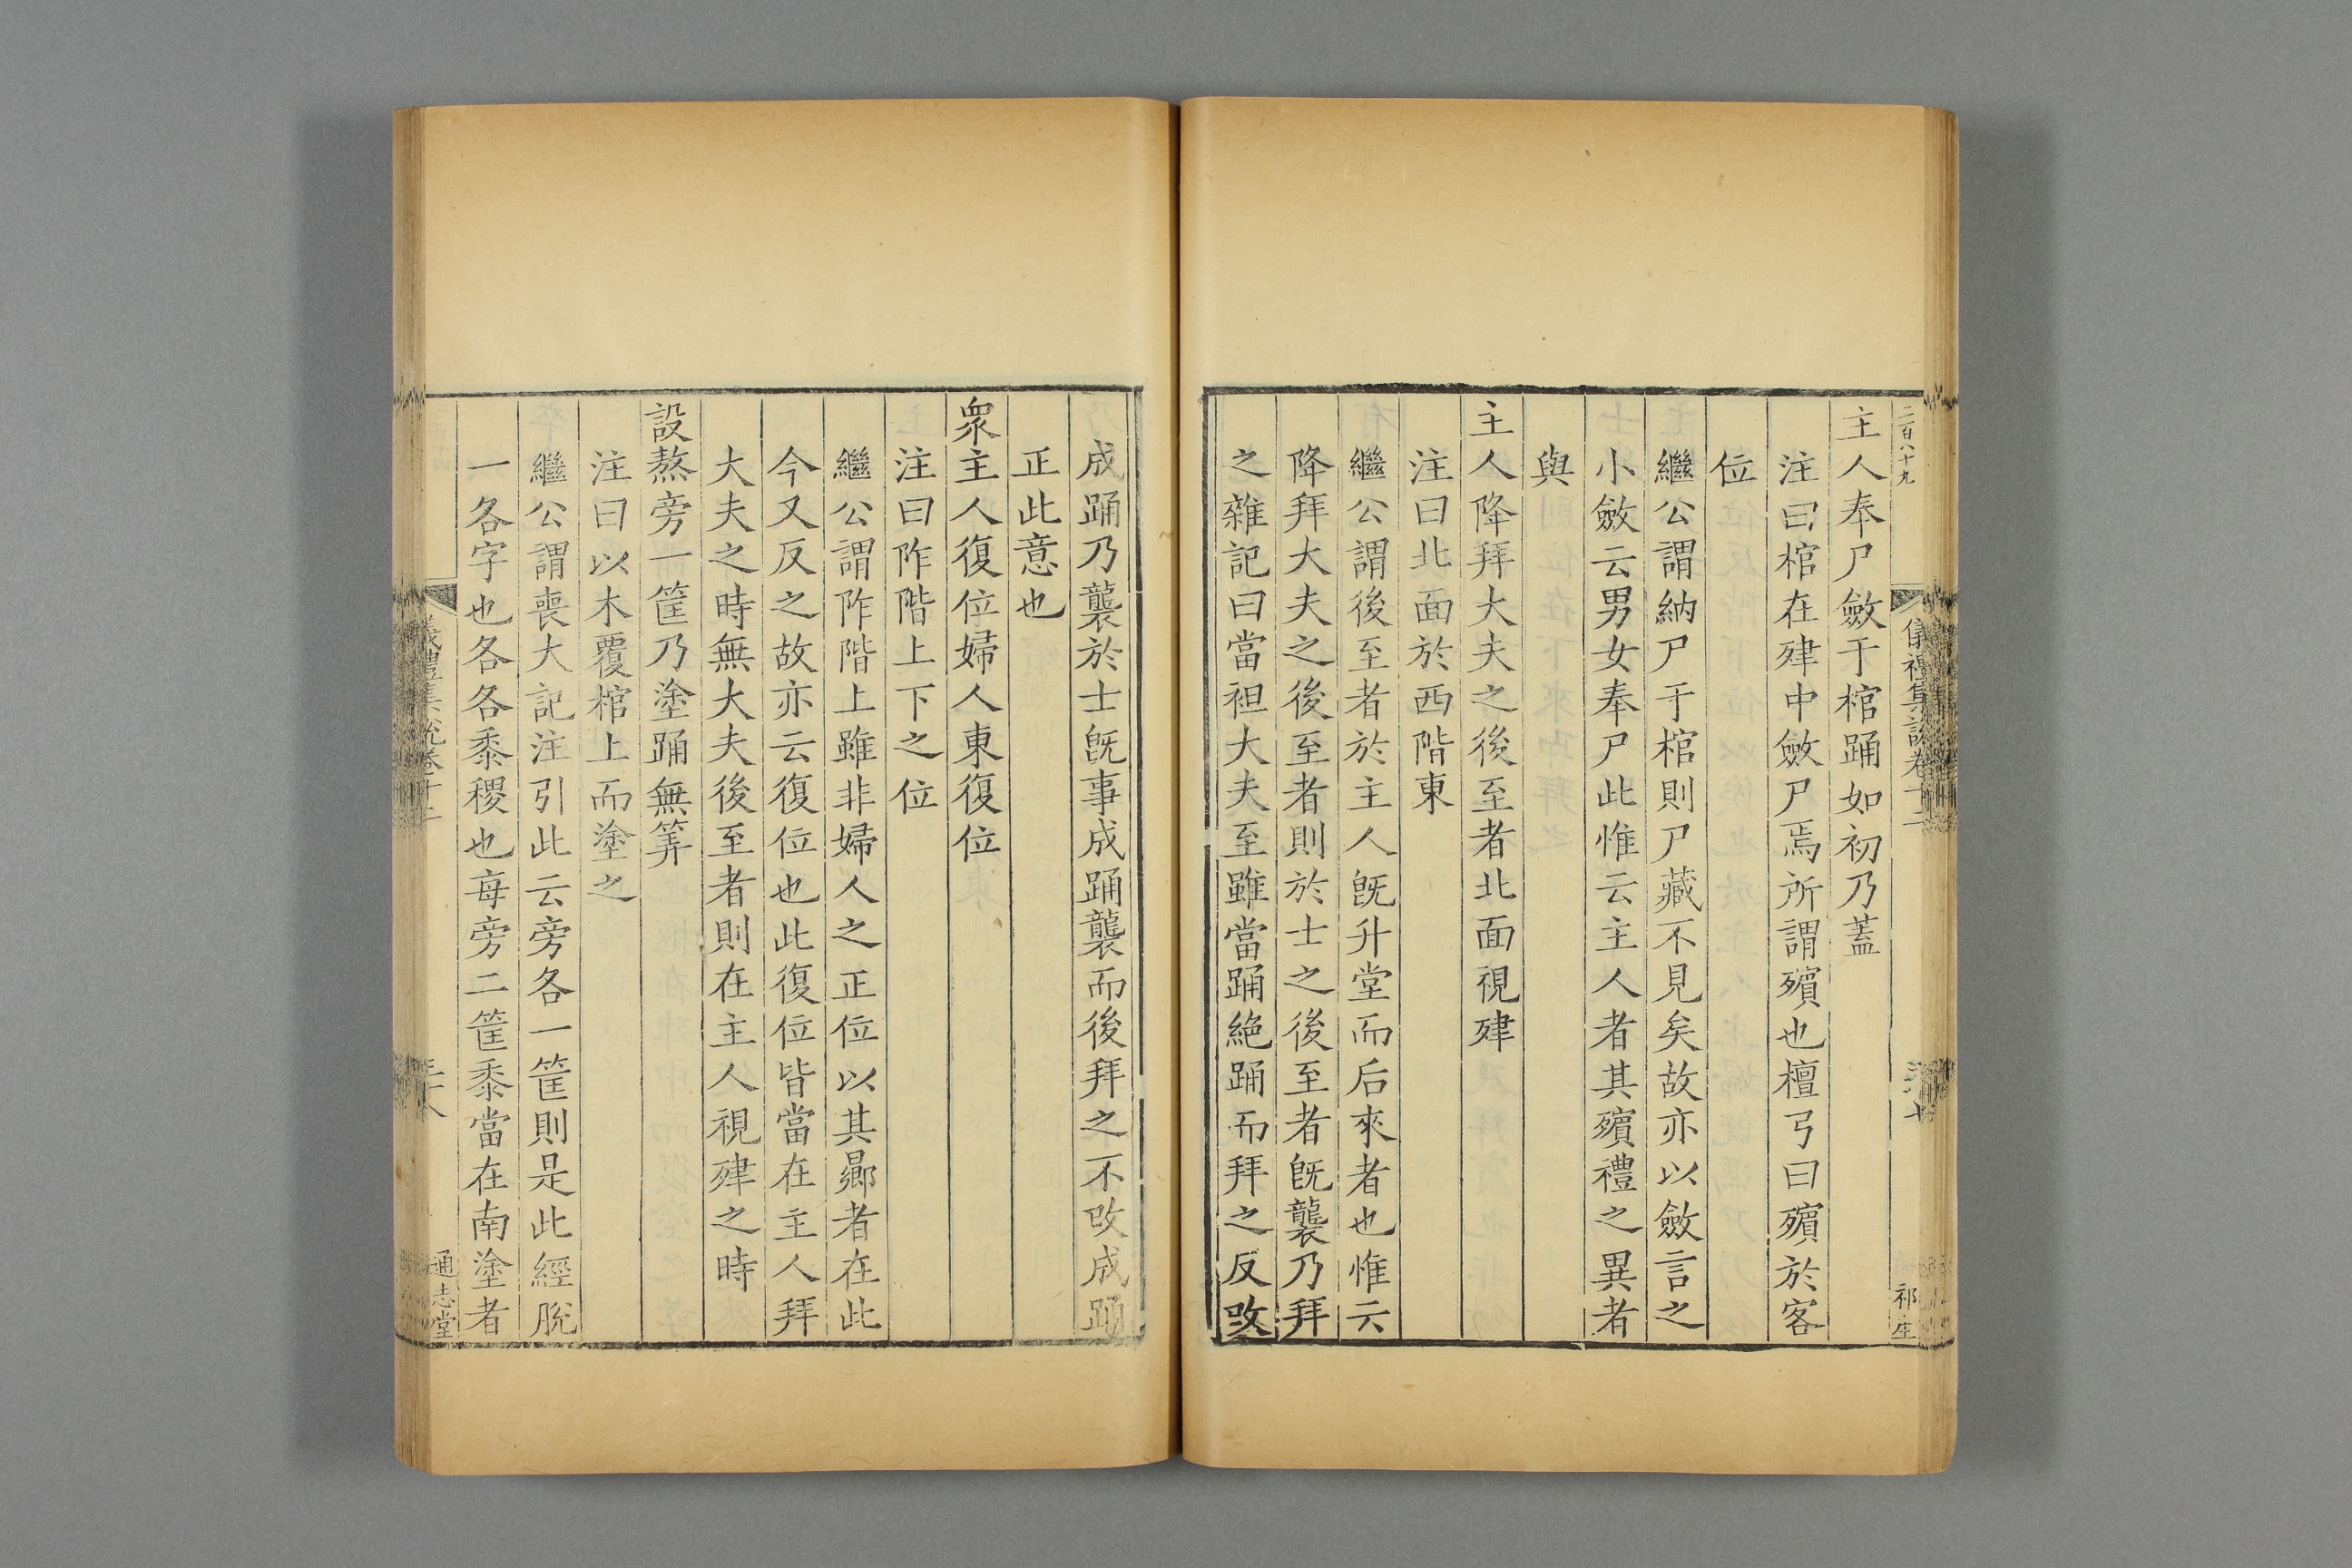 二百八十九
儀禮集說卷十二
祁生
主人奉尸斂于棺踊如初乃蓋
注曰棺在肂中斂尸焉所謂殯也檀弓曰殯於客
位
繼公謂納尸于棺則尸藏不見矣故亦以斂言之
小斂云男女奉尸此惟云主人者其殯禮之異者
與
主人降拜大夫之後至者北面視肂
注曰北面於西階東
繼公謂後至者於主人旣升堂而后來者也惟云
降拜大夫之後至者則於士之後至者旣襲乃拜
之雜記曰當袒大夫至雖當踊絶踊而拜之反改
成踊乃襲於士旣事成踊襲而後拜之不改成踊
正此意也
衆主人復位婦人東復位
注曰阼階上下之位
繼公謂阼階上雖非婦人之正位以其曏者在此
今又反之故亦云復位也此復位皆當在主人拜
大夫之時無大夫後至者則在主人視肂之時
設熬旁一筐乃塗踊無筭
注曰以木覆棺上而塗之
繼公謂喪大記注引此云旁各一筐則是此經脫
一各字也各各黍稷也每旁二筐黍當在南塗者
儀禮集說卷十二
三十八
通志堂